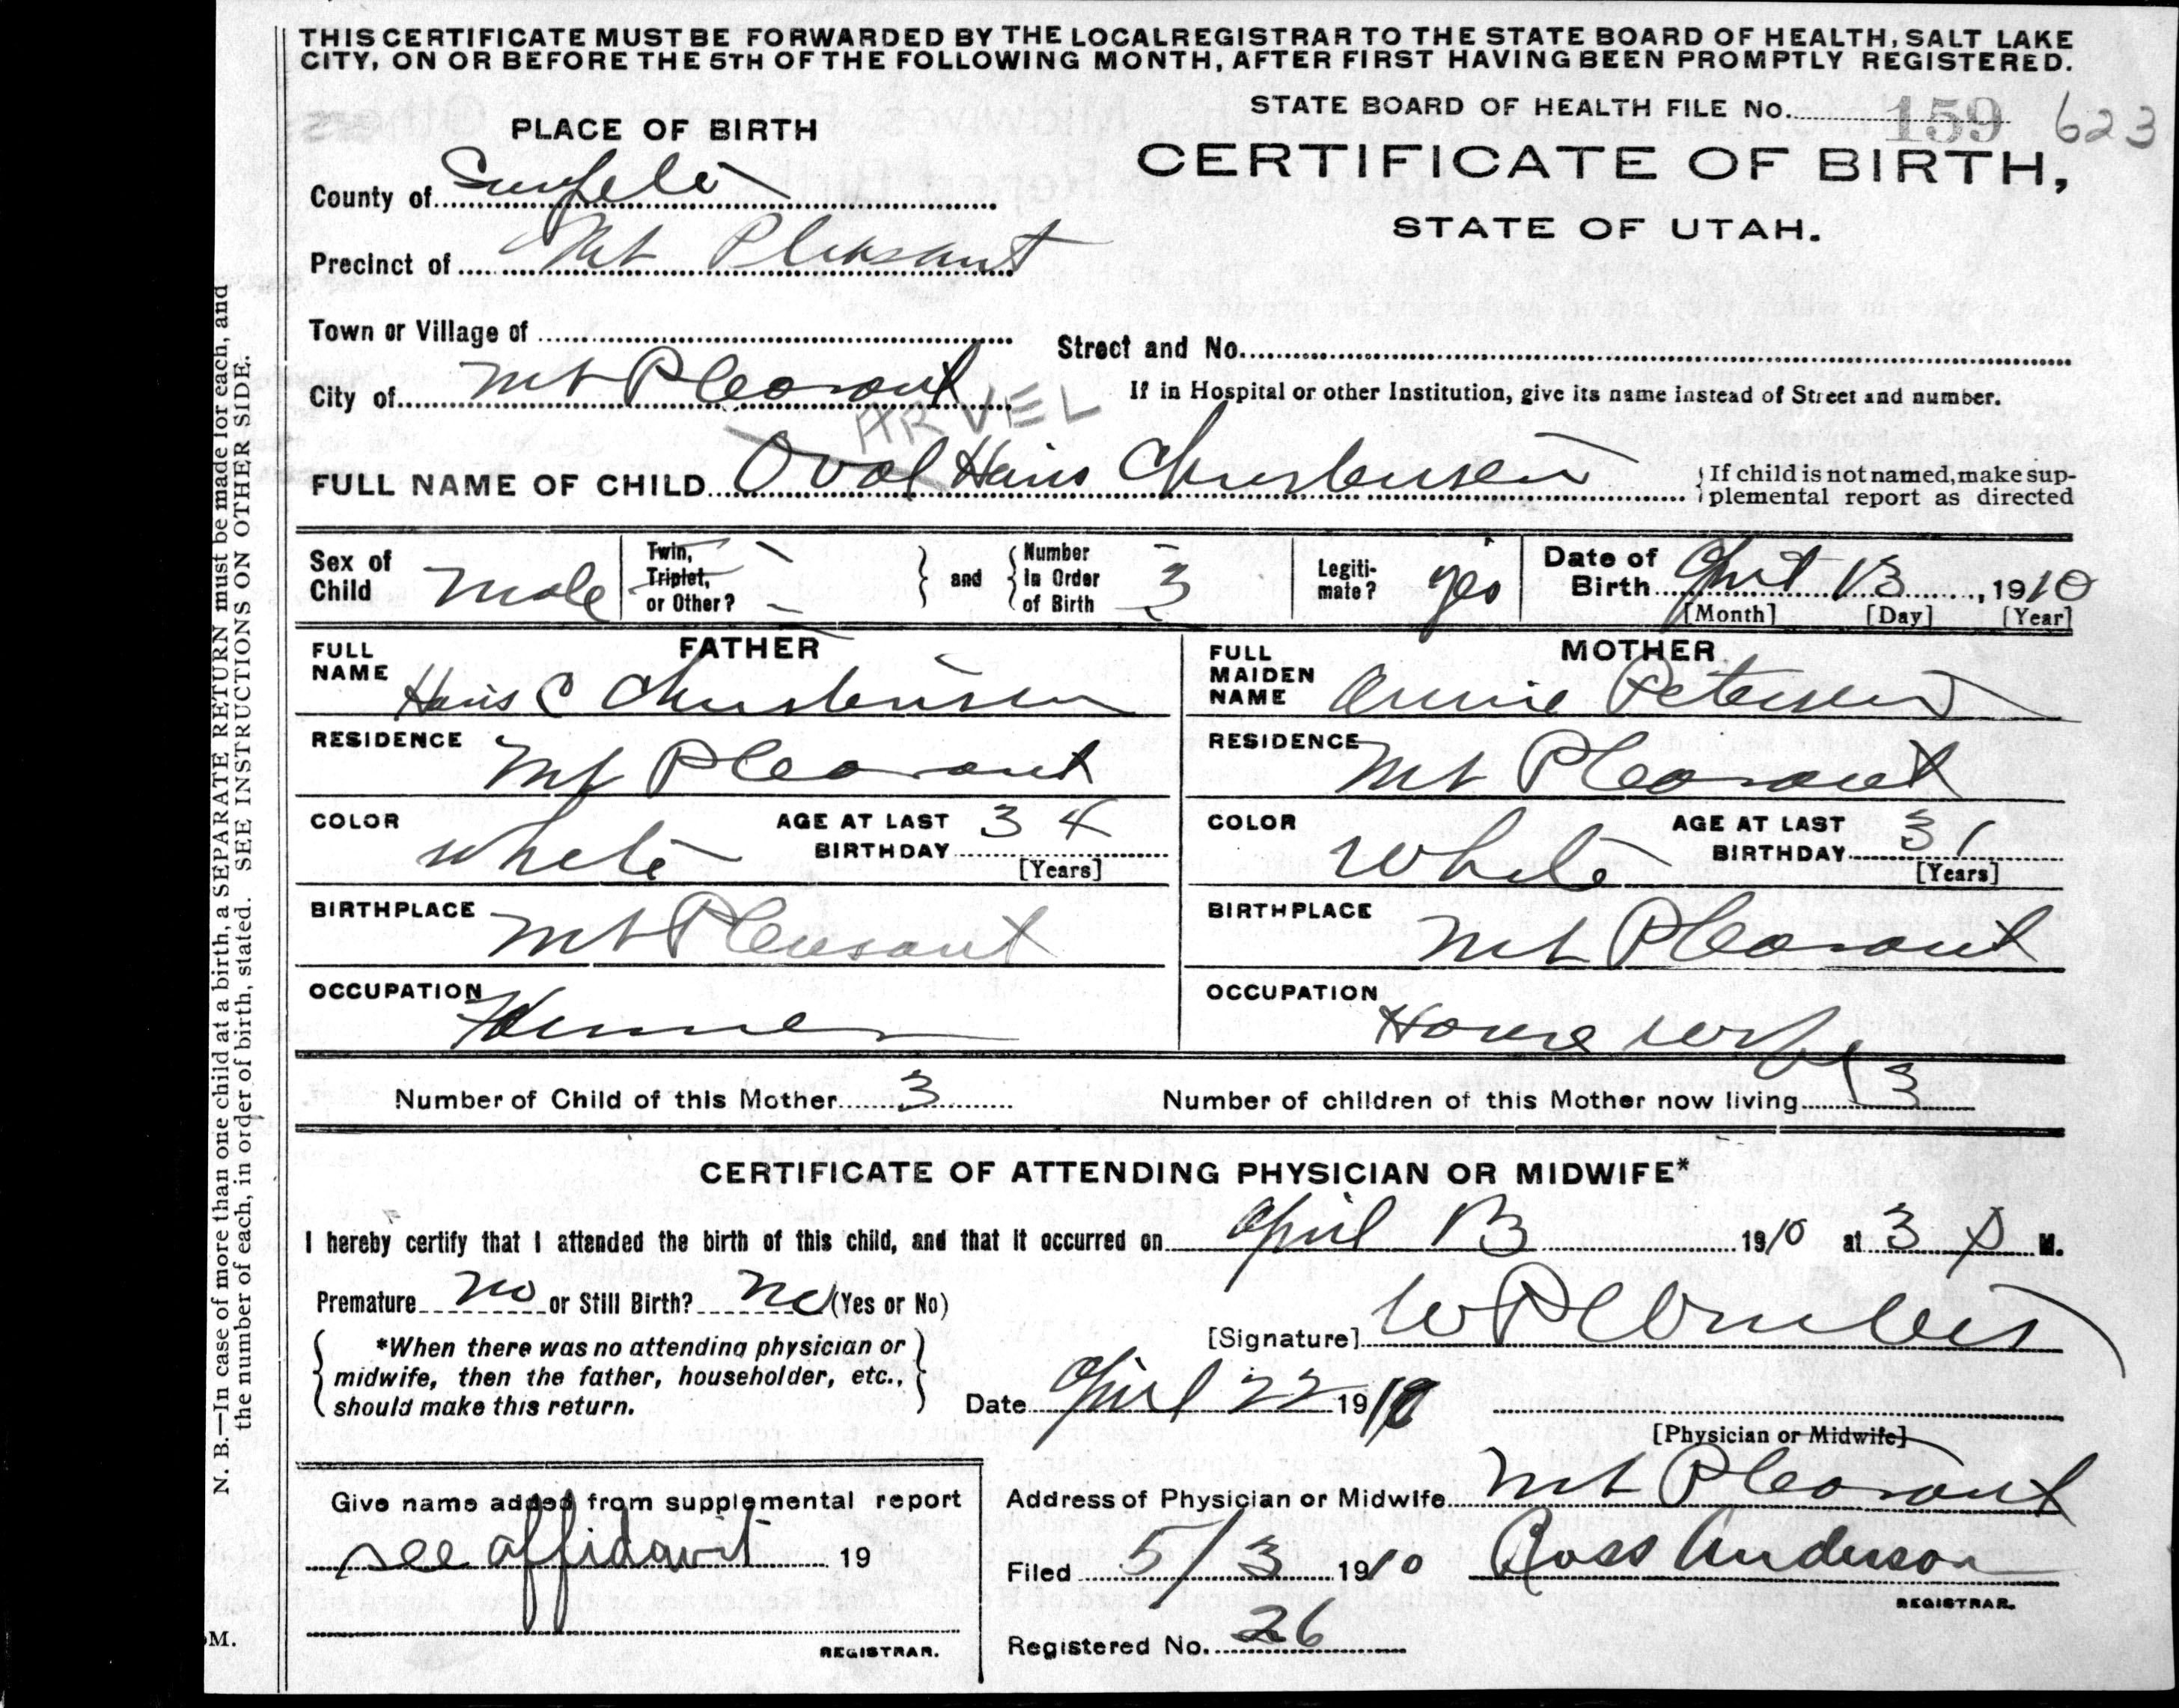 THIS CERTIFICATE MUST BE FORWARDED BY THE LOCAL REGISTRAR TO THE STATE BOARD OF HEALTH, SALT LAKE
CITY, ON OR BEFORE THE 5TH OF THE FOLLOWING MONTH, AFTER FIRST HAVING BEEN PROMPTLY REGISTERED.
STATE BOARD OF HEALTH FILE No. 159 623
PLACE OF BIRTH
CERTIFICATE OF BIRTH,
STATE OF UTAH.
County of Sanpete
Precinct of Mt Pleasant
Town or Village of
Street and No.
City of Mt Pleasant
If in Hospital or other Institution, give its name instead of Street and number.
ARVEL
FULL NAME OF CHILD Oval Hans Christensen
If child is not named, make sup-
plemental report as directed
Sex of Child Male
Twin, Triplet, or Other?
and
Number in Order of Birth 3
Legiti-mate? yes
Date of Birth April 13, 1910
[Month] [Day] [Year]
FATHER
MOTHER
FULL NAME Hans C Christensen
FULL MAIDEN NAME Annie Petersen
RESIDENCE Mt Pleasant
RESIDENCE Mt Pleasant
COLOR White AGE AT LAST BIRTHDAY 34 [Years]
COLOR White AGE AT LAST BIRTHDAY 31 [Years]
BIRTHPLACE Mt Pleasant
BIRTHPLACE Mt Pleasant
OCCUPATION Farmer
OCCUPATION House wife
Number of Child of this Mother 3
Number of children of this Mother now living 3
CERTIFICATE OF ATTENDING PHYSICIAN OR MIDWIFE*
I hereby certify that I attended the birth of this child, and that it occurred on April 13 1910 at 3 P M.
Premature no or Still Birth? no (Yes or No)
*When there was no attending physician or
midwife, then the father, householder, etc.,
should make this return.
[Signature] W P
Date April 22 1910
[Physician or Midwife]
Address of Physician or Midwife Mt Pleasant
Give name added from supplemental report
see affidavit 19
REGISTRAR.
Filed 5/3 1910 Ross Anderson
REGISTRAR.
Registered No. 26
N. B.—In case of more than one child at a birth, a SEPARATE RETURN must be made for each, and
the number of each, in order of birth, stated. SEE INSTRUCTIONS ON OTHER SIDE.
M.